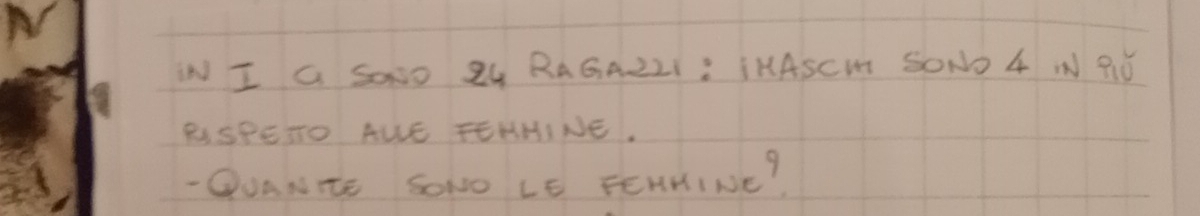 IN I G SONO 24 RAGAZZI: I MASCHI SONO 4 IN PIÙ
RISPETTO ALLE FEMMINE.
- QUANTE SONO LE FEMMINE?